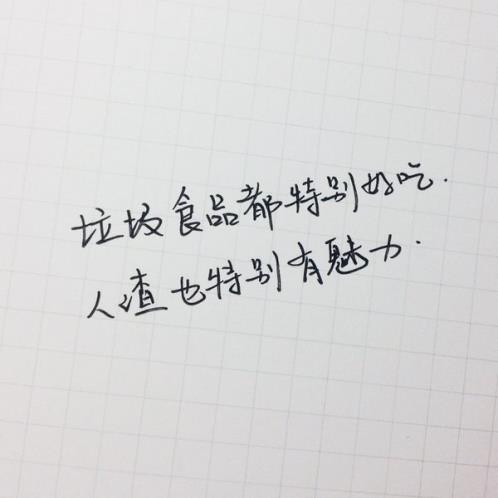 垃圾食品都特别好吃.
人渣也特别有魅力.